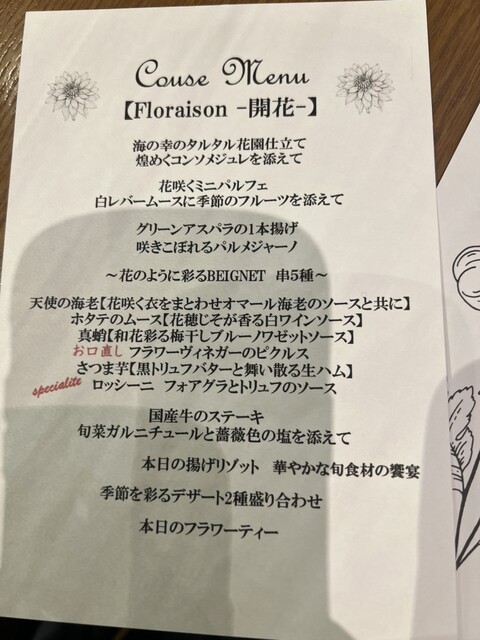 Couse Menu
【Floraison -開花-】
海の幸のタルタル花園仕立て
煌めくコンソメジュレを添えて
花咲くミニパルフェ
白レバームースに季節のフルーツを添えて
グリーンアスパラの1本揚げ
咲きこぼれるパルメジャーノ
～花のように彩るBEIGNET 串5種～
天使の海老【花咲く衣をまとわせオマール海老のソースと共に】
ホタテのムース【花穂じそが香る白ワインソース】
真蛸【和花彩る梅干しブルーノワゼットソース】
お口直し フラワーヴィネガーのピクルス
さつま芋【黒トリュフバターと舞い散る生ハム】
specialite ロッシーニ フォアグラとトリュフのソース
国産牛のステーキ
旬菜ガルニチュールと薔薇色の塩を添えて
本日の揚げリゾット 華やかな旬食材の饗宴
季節を彩るデザート2種盛り合わせ
本日のフラワーティー